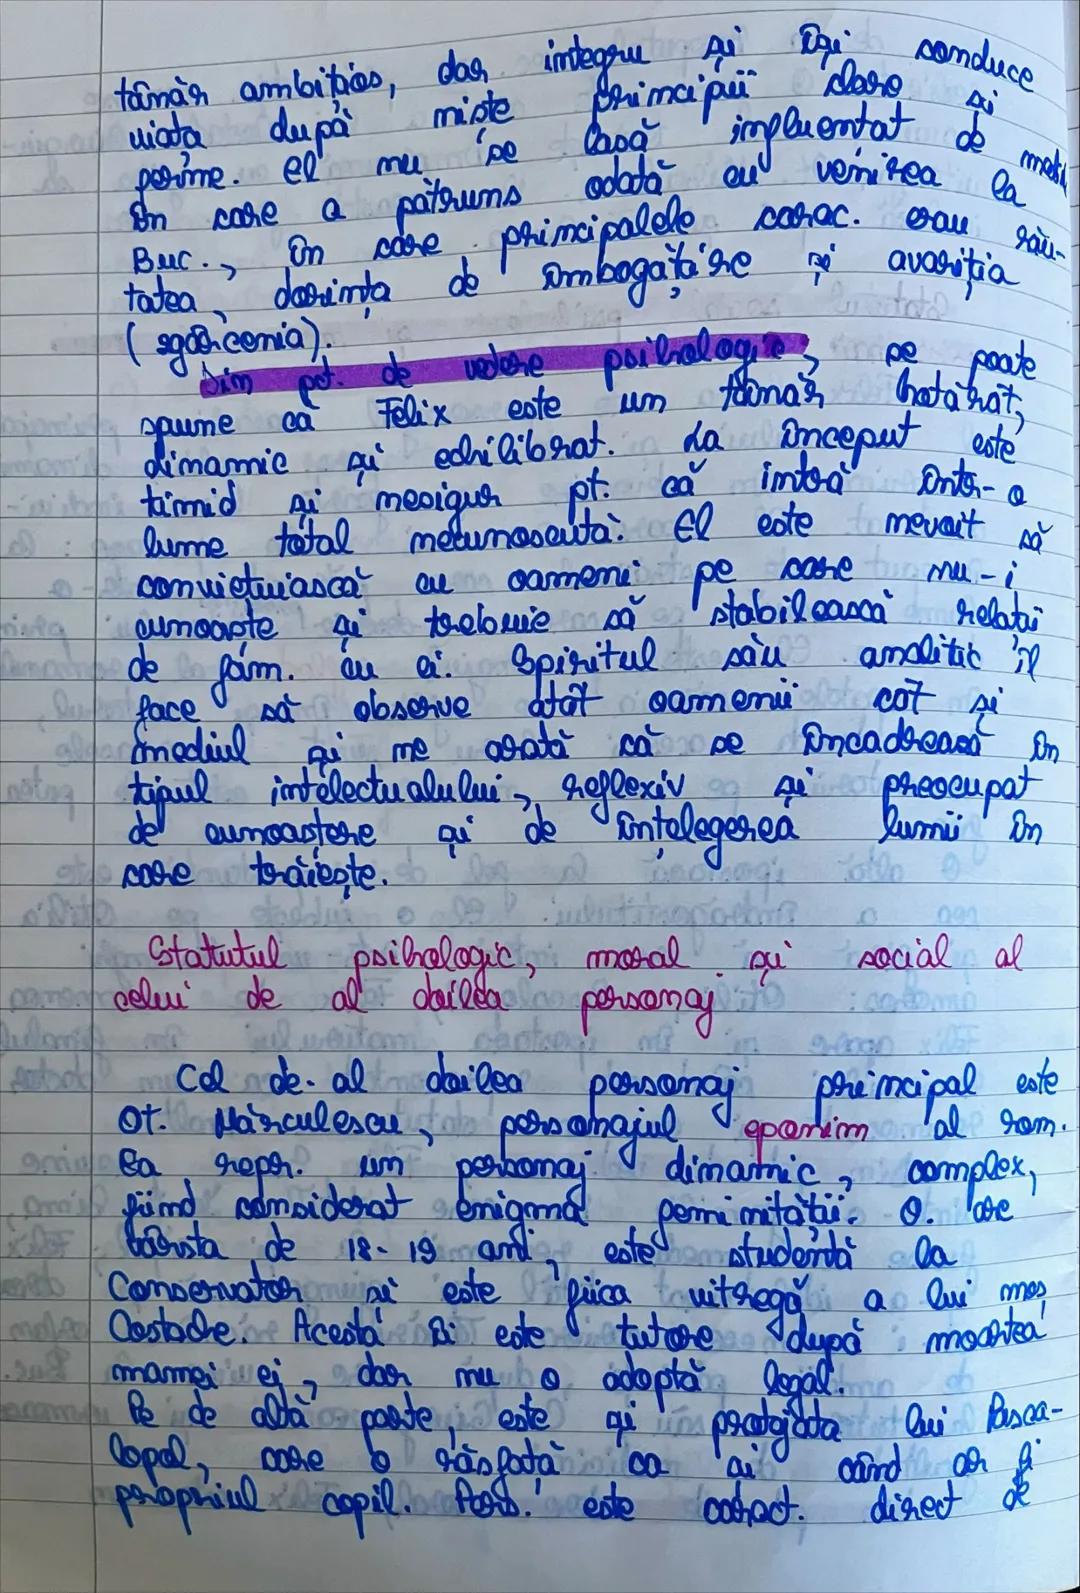 tânăr ambițios, dar integru și își conduce
viața după niște principii clare și
ferme. El nu se lasă influentat de mediul
în care a pătruns odată cu venirea la
Buc., în care principalele carac. erau rău-
tatea, dorința de îmbogățire și avariția
(zgârcenia).
Din pct. de vedere psihologic, se poate
spune că Felix este un tânăr hotărât,
dinamic și echilibrat. La început este
timid și nesigur pt. că intră într-o
lume total necunoscută. El este nevoit să
conviețuiască cu oameni pe care nu-i
cunoaște și trebuie să stabilească relații
de fam. cu ei. Spiritul său analitic îl
face să observe atât oamenii cât și
mediul și ne arată că se încadrează în
tipul intelectualului, reflexiv și preocupat
de cunoaștere și de înțelegerea lumii în
care trăiește.
Statutul psihologic, moral și social al
celui de al doilea personaj
Cel de-al doilea personaj principal este
Ot. Mărculescu, personajul eponim al rom.
Ea repr. un personaj dinamic, complex,
fiind considerat enigma feminității. O. are
vârsta de 18-19 ani, este studentă la
Conservator și este fiica vitregă a lui moș
Costache. Acesta îi este tutore după moartea
mamei ei, dar nu o adoptă legal.
Pe de altă parte, este și protejata lui Pasca-
lopol, care o răsfață ca și când ar fi
propriul copil. Pers. este caract. direct de